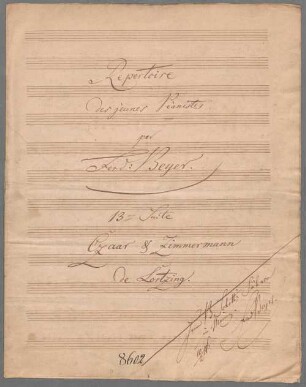 Repertoire
des jeunes Pianistes
par
Ferd: Beyer.
13me Suite
Czaar & Zimmermann
de Lortzing.
8602